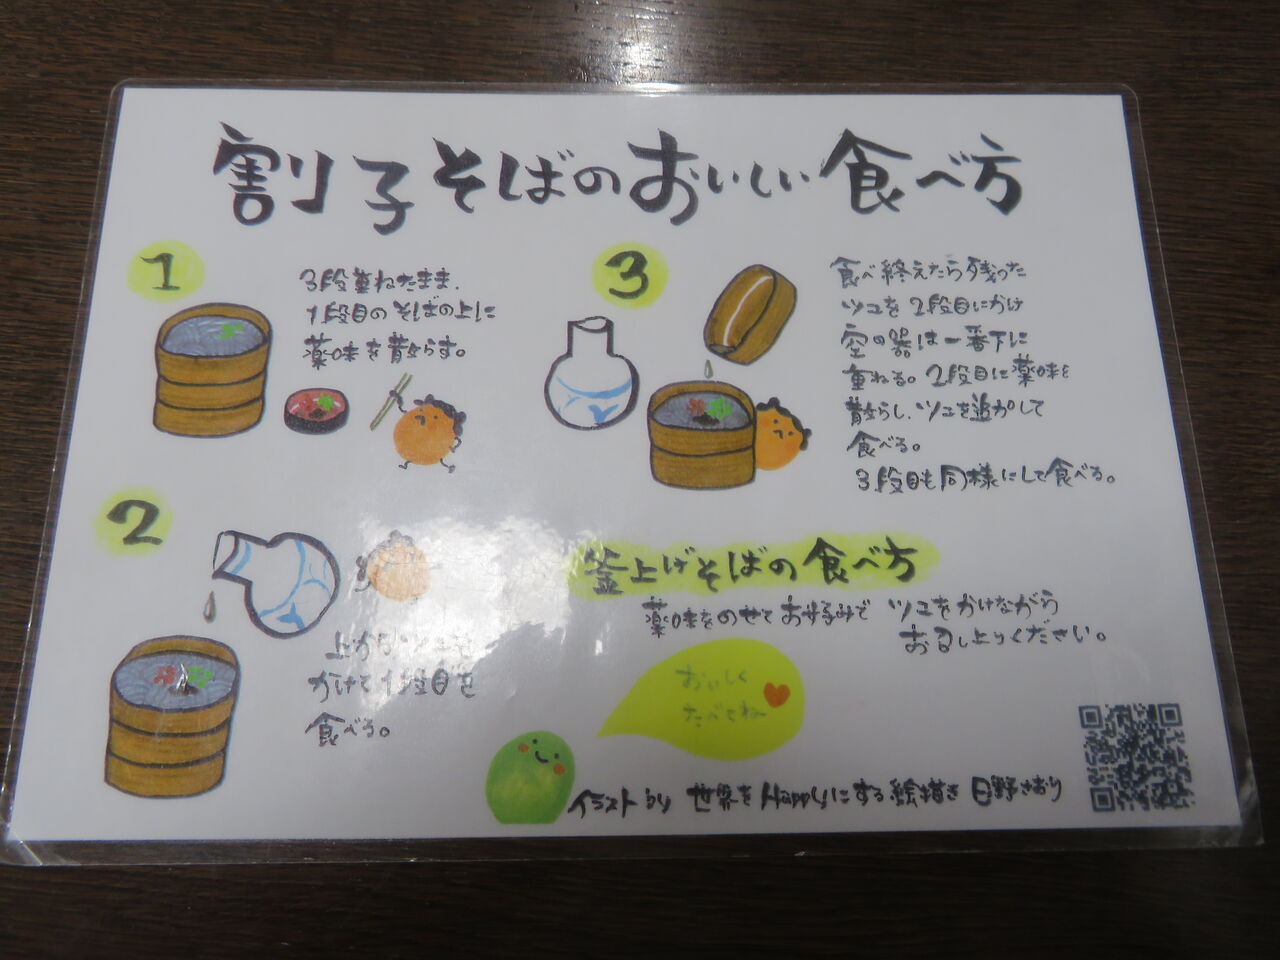 割子そばのおいしい食べ方
1
3段重ねたまま、
1段目のそばの上に
薬味を散らす。
2
上からツユを
かけて1段目を
食べる。
3
食べ終えたら残った
ツユを2段目にかけ
空の器は一番下に
重ねる。2段目に薬味を
散らし、ツユを追加して
食べる。
3段目も同様にして食べる。
釜上げそばの食べ方
薬味をのせてお好みで ツユをかけながら
お召し上りください。
おいしく
たべてね
イラスト by 世界をHappyにする絵描き 日野さおり